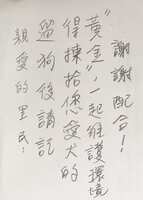 親愛的里民：
遛狗後請記
得揀拾您愛犬的
"黃金"，一起維護環境
謝謝配合！